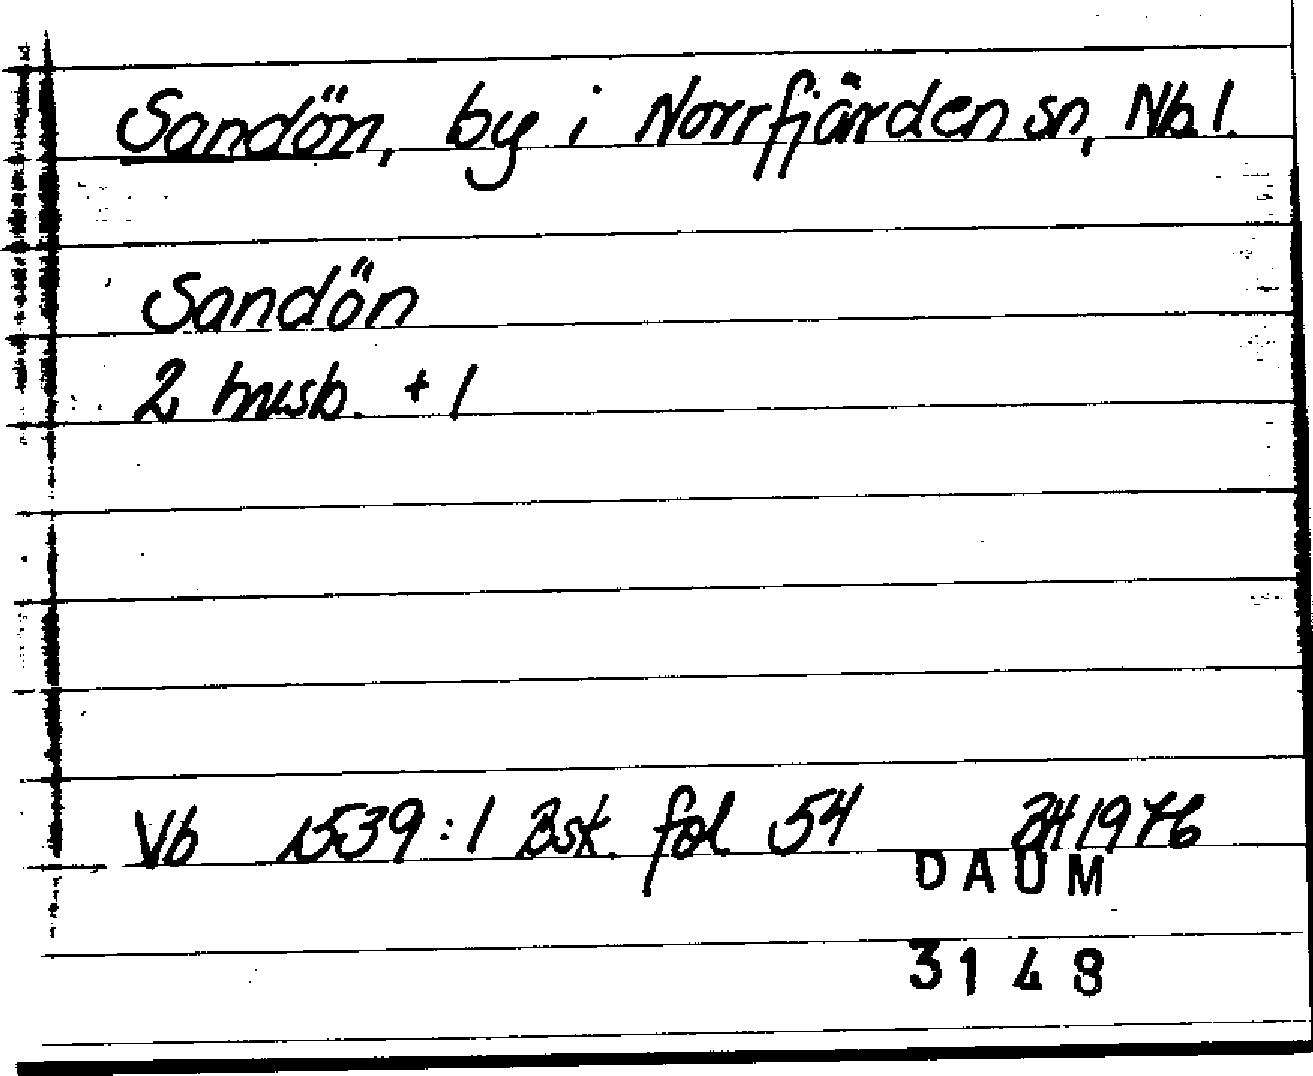 Sandön, by i Norrfjärden sn, Nb l.
Sandön
2 husb. + 1
Vb 1539:1 Bsk. fol 54 1976
DAUM
3148